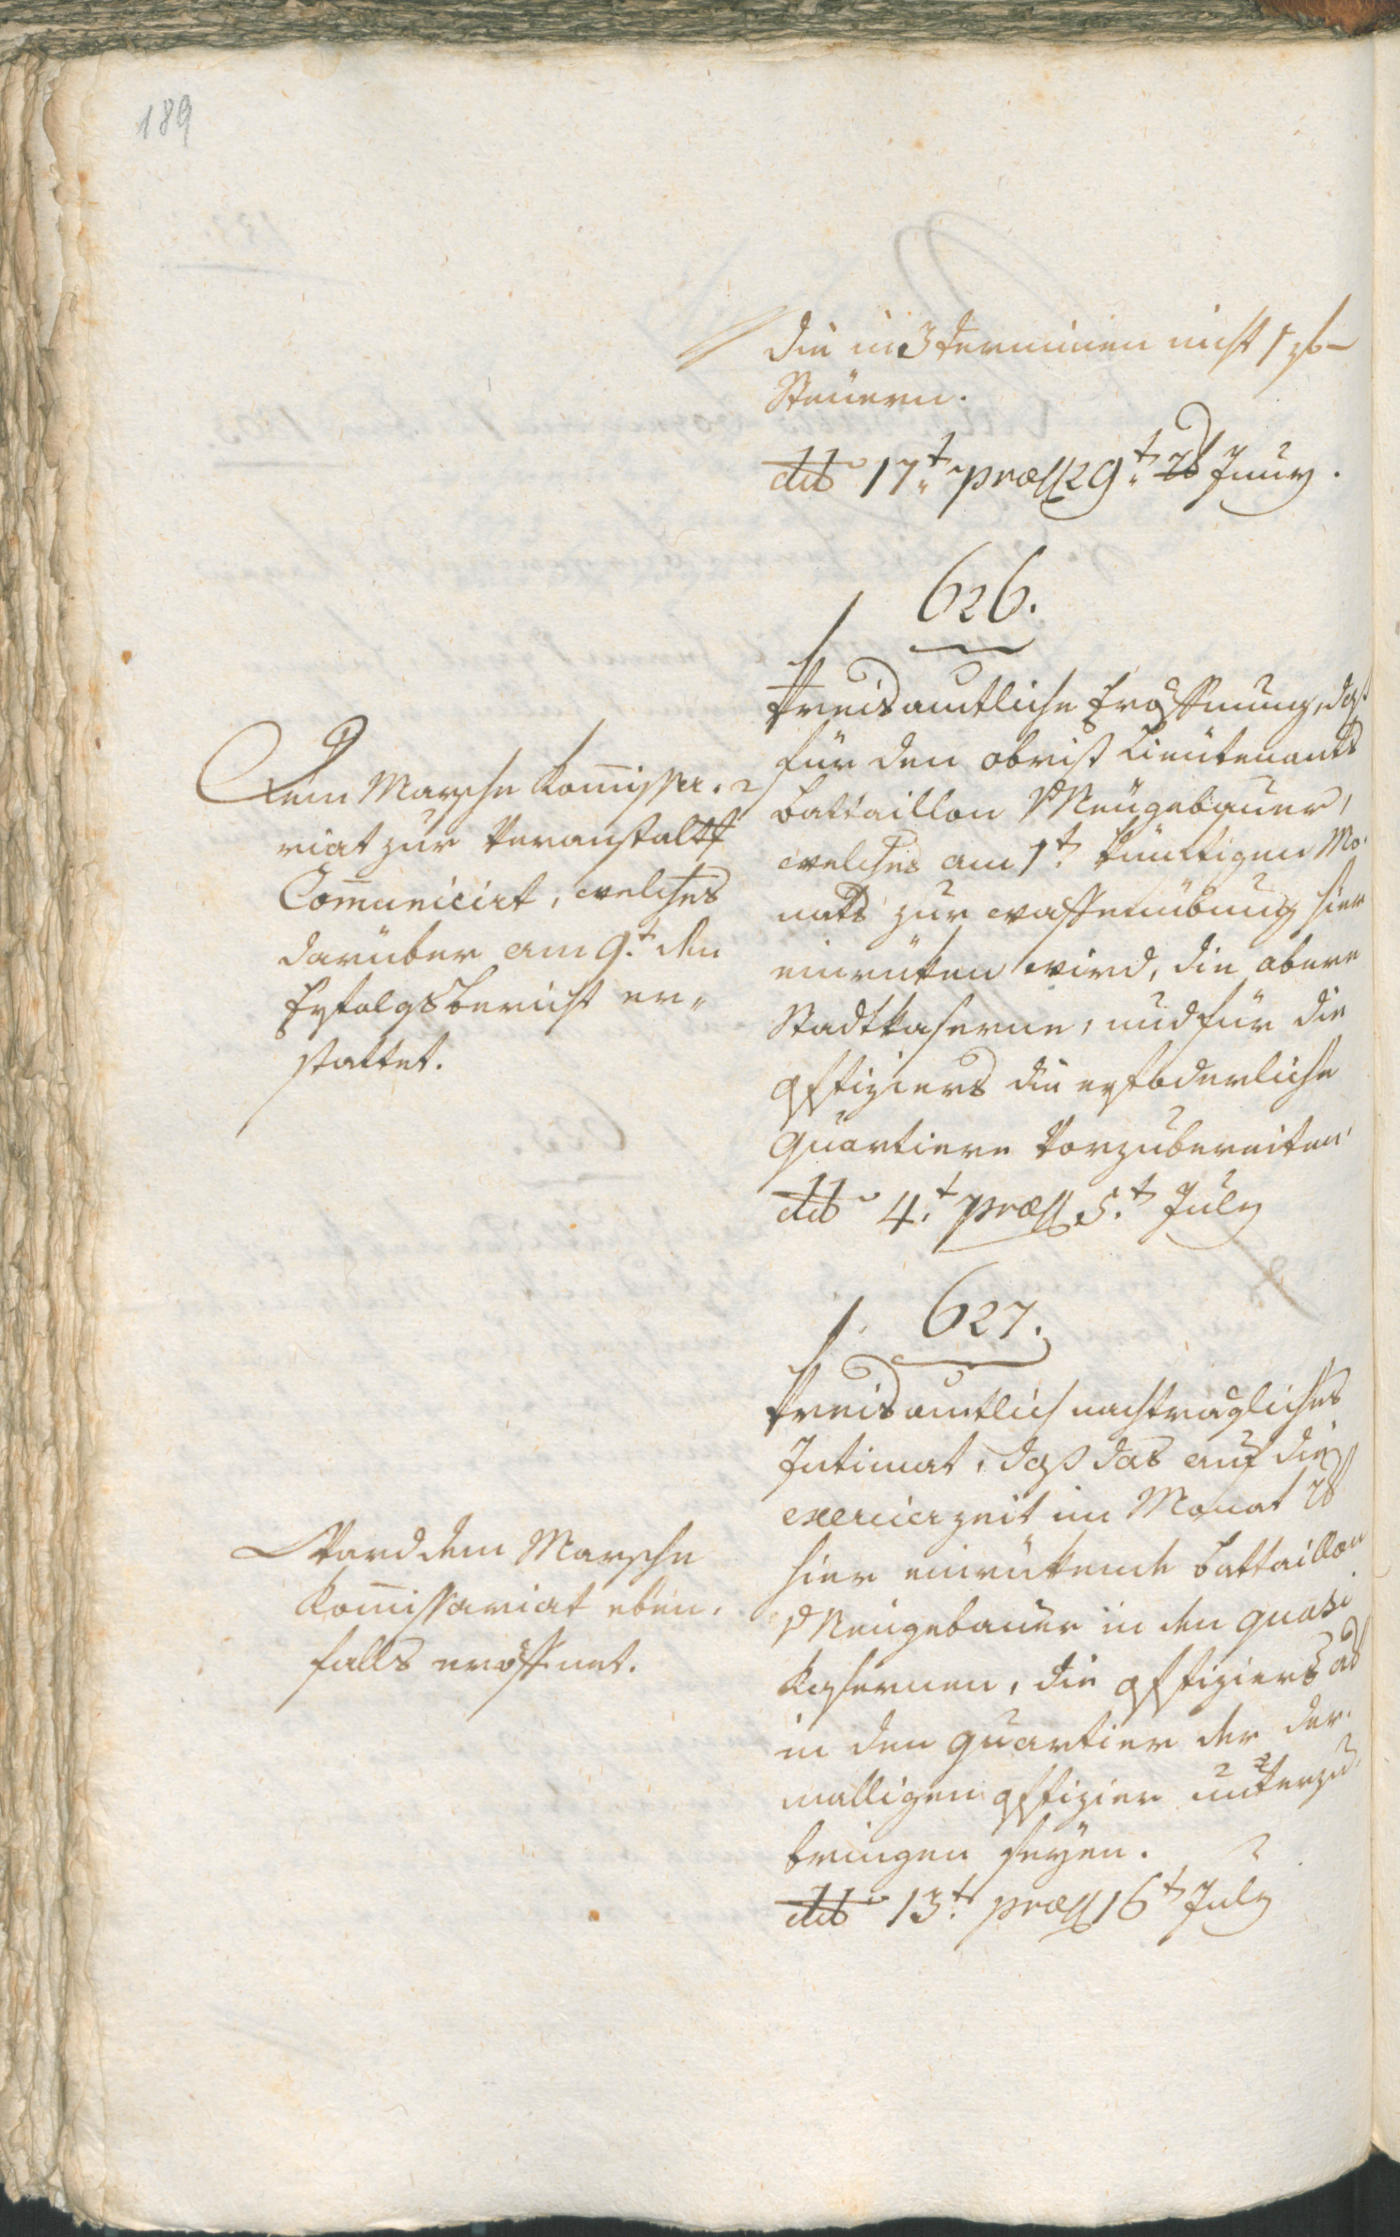 189
die in 3 Terminen nicht
Steuern.
ddto 17t. præs 29t. Juny.
626.
Kreisamtliche Eröffnung, daß
für den obrist Lieutenants
Battaillon v Neugebauer,
welches am 1t. künftigen Mo-
nats zur waffenübung hier
einrüken wird, die obere
Stadtkaserne, und für die
offiziers die erfoderliche
Quartiere vorzubereiten.
ddto 4t. præs 5t. July
Dem Marsche Kom̄issa-
riat zur Veranstalt
Com̄unicirt, welches
darüber am 9t. den
Erfolgsbericht er„
stattet.
627.
Kreisamtlich nachträgliches
Intimat, daß das auf die
exercierzeit im Monat
hier einrükende Battaillon
v Neugebauer in den quasi
Kasernen, die offiziers
in den quartier der der-
malligen offizier unterzu-
bringen seyen.
ddto 13t. præs 16t July
Ward dem Marsche
Kom̄issariat eben-
falls eröffnet.